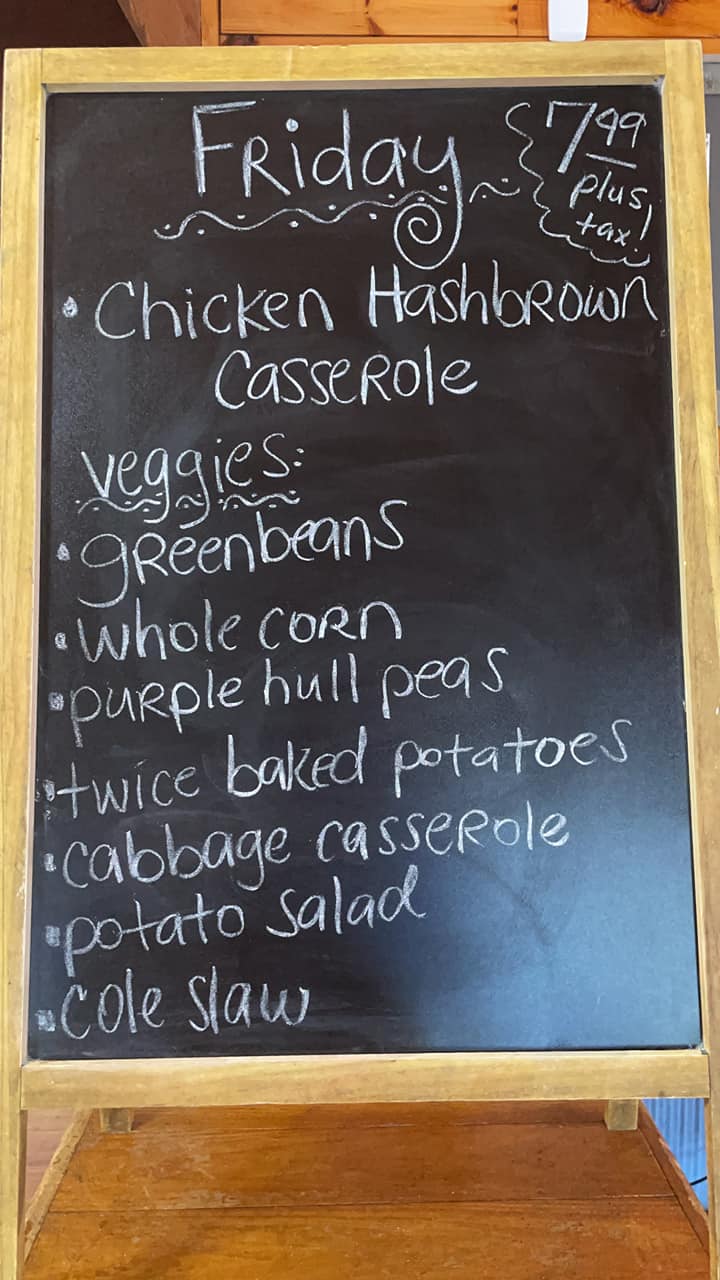 Friday
7.49
plus
tax!
• Chicken Hashbrown
Casserole
veggies:
• greenbeans
• whole corn
• purple hull peas
• twice baked potatoes
• cabbage casserole
• potato salad
• cole slaw